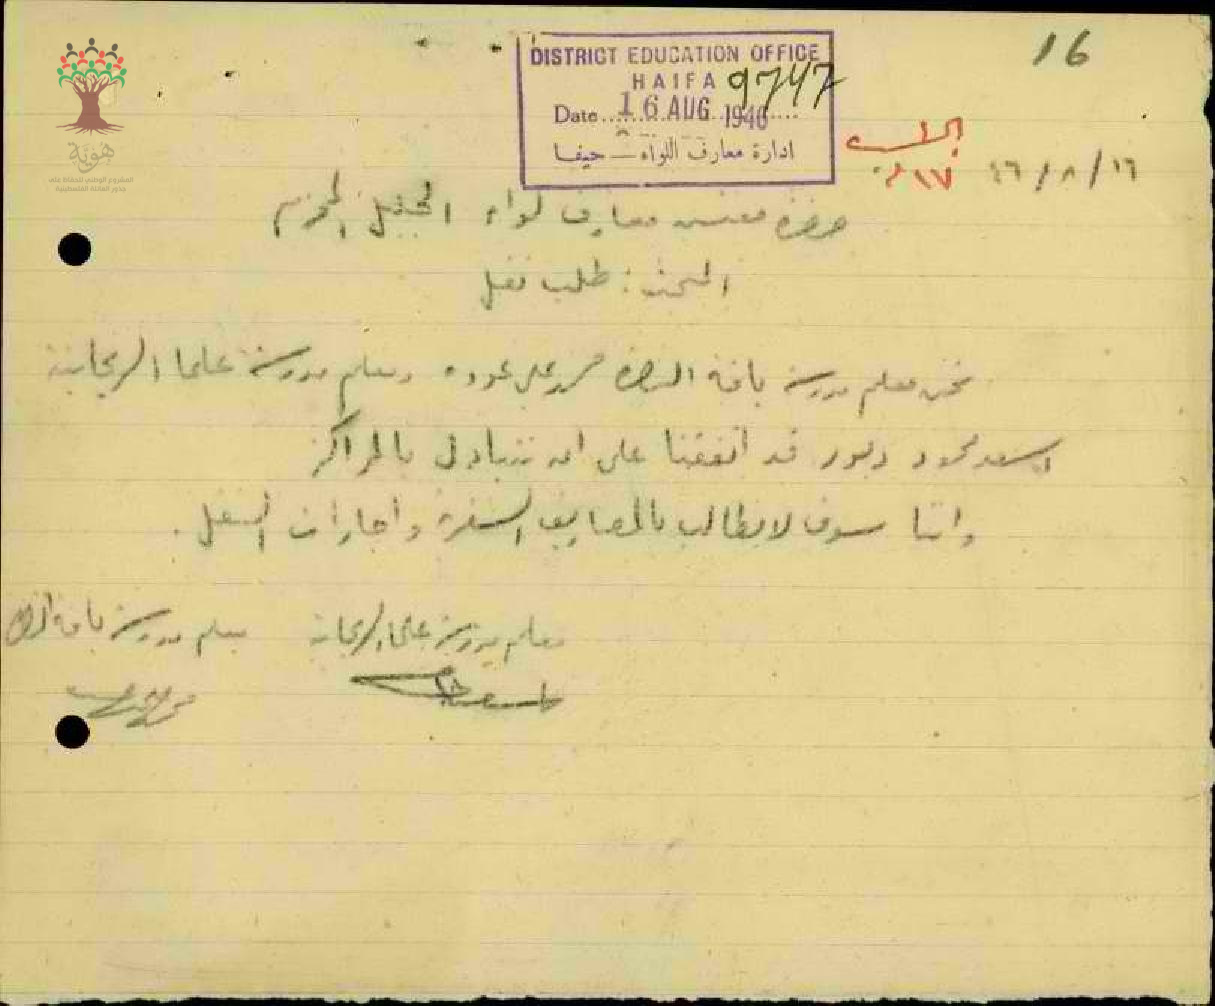 16
DISTRICT EDUCATION OFFICE
HAIFA
9747
Date 16 AUG 1946
ادارة معارف اللواء — حيفا
٤٦/٨/١٦
هوية
المشروع الوطني للحفاظ على
جذور العائلة الفلسطينية
حضرة مفتش معارف لواء الجليل المحترم
المبحث: طلب نقل
نحن معلم مدرسة يافة الناصرة محمد علي عوده ومعلم مدرسة علما الريحانية
اسعد محمود دبور قد اتفقنا على ان نتبادل بالمراكز
واننا سوف لا نطالب بالمصاريف السفرية واجارات النقل.
معلم مدرسة علما الريحانية
معلم مدرسة يافة الناصرة